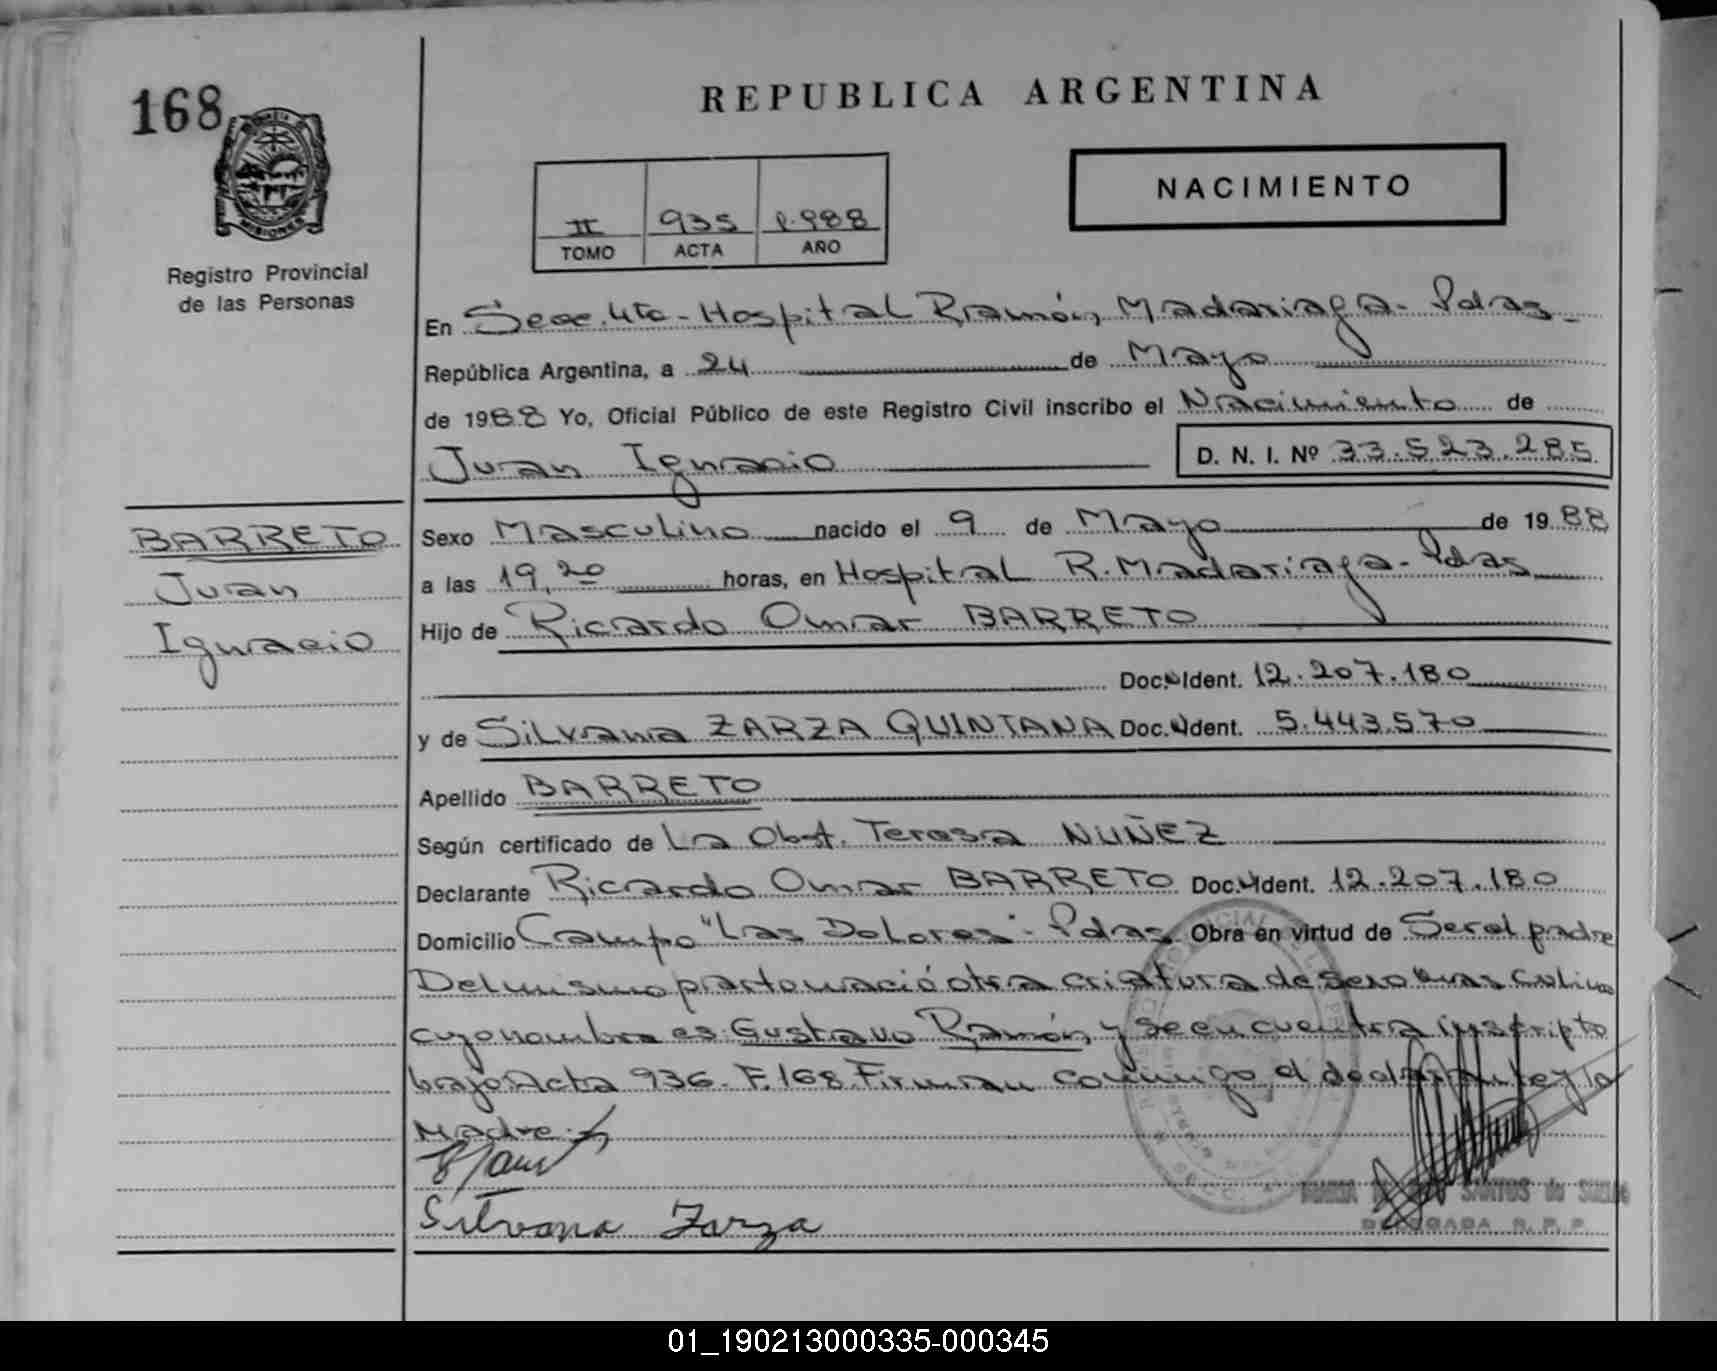 168
MISIONES
Registro Provincial
de las Personas
REPUBLICA ARGENTINA
NACIMIENTO
II 935 1.988
TOMO ACTA AÑO
En Secc. 4ta - Hospital Ramón Madariaga - Pdas
República Argentina, a 24 de Mayo
de 1988 Yo, Oficial Público de este Registro Civil inscribo el Nacimiento de
Juan Ignacio
D. N. I. Nº 33.523.285
BARRETO
Juan
Ignacio
Sexo Masculino nacido el 9 de Mayo de 1988
a las 19,20 horas, en Hospital R. Madariaga - Pdas
Hijo de Ricardo Omar BARRETO
Doc. Ident. 12.207.180
y de Silvana ZARZA QUINTANA Doc. Ident. 5.443.570
Apellido BARRETO
Según certificado de La Obst. Teresa NUÑEZ
Declarante Ricardo Omar BARRETO Doc. Ident. 12.207.180
Domicilio Campo "Las Dolores" - Pdas Obra en virtud de Ser el padre
Del mismo parto nació otra criatura de sexo masculino
cuyo nombre es Gustavo Ramón y se encuentra inscripto
bajo Acta 936 - F. 168 Firman conmigo el declarante y la
Madre.
Silvana Zarza
SANTOS de
DELEGADA R. P. P.
01_190213000335-000345